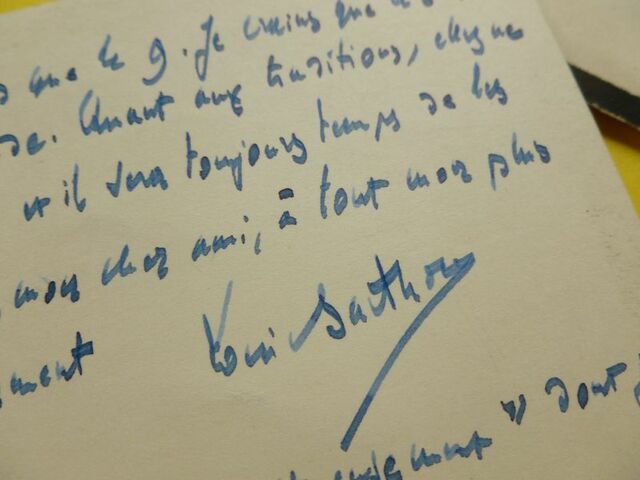 que le 9. Je crains que
de. Quant aux traditions, chaque
et il sera toujours temps de les
mon cher ami, à tout mon plus
ment
Louis Barthou
dont